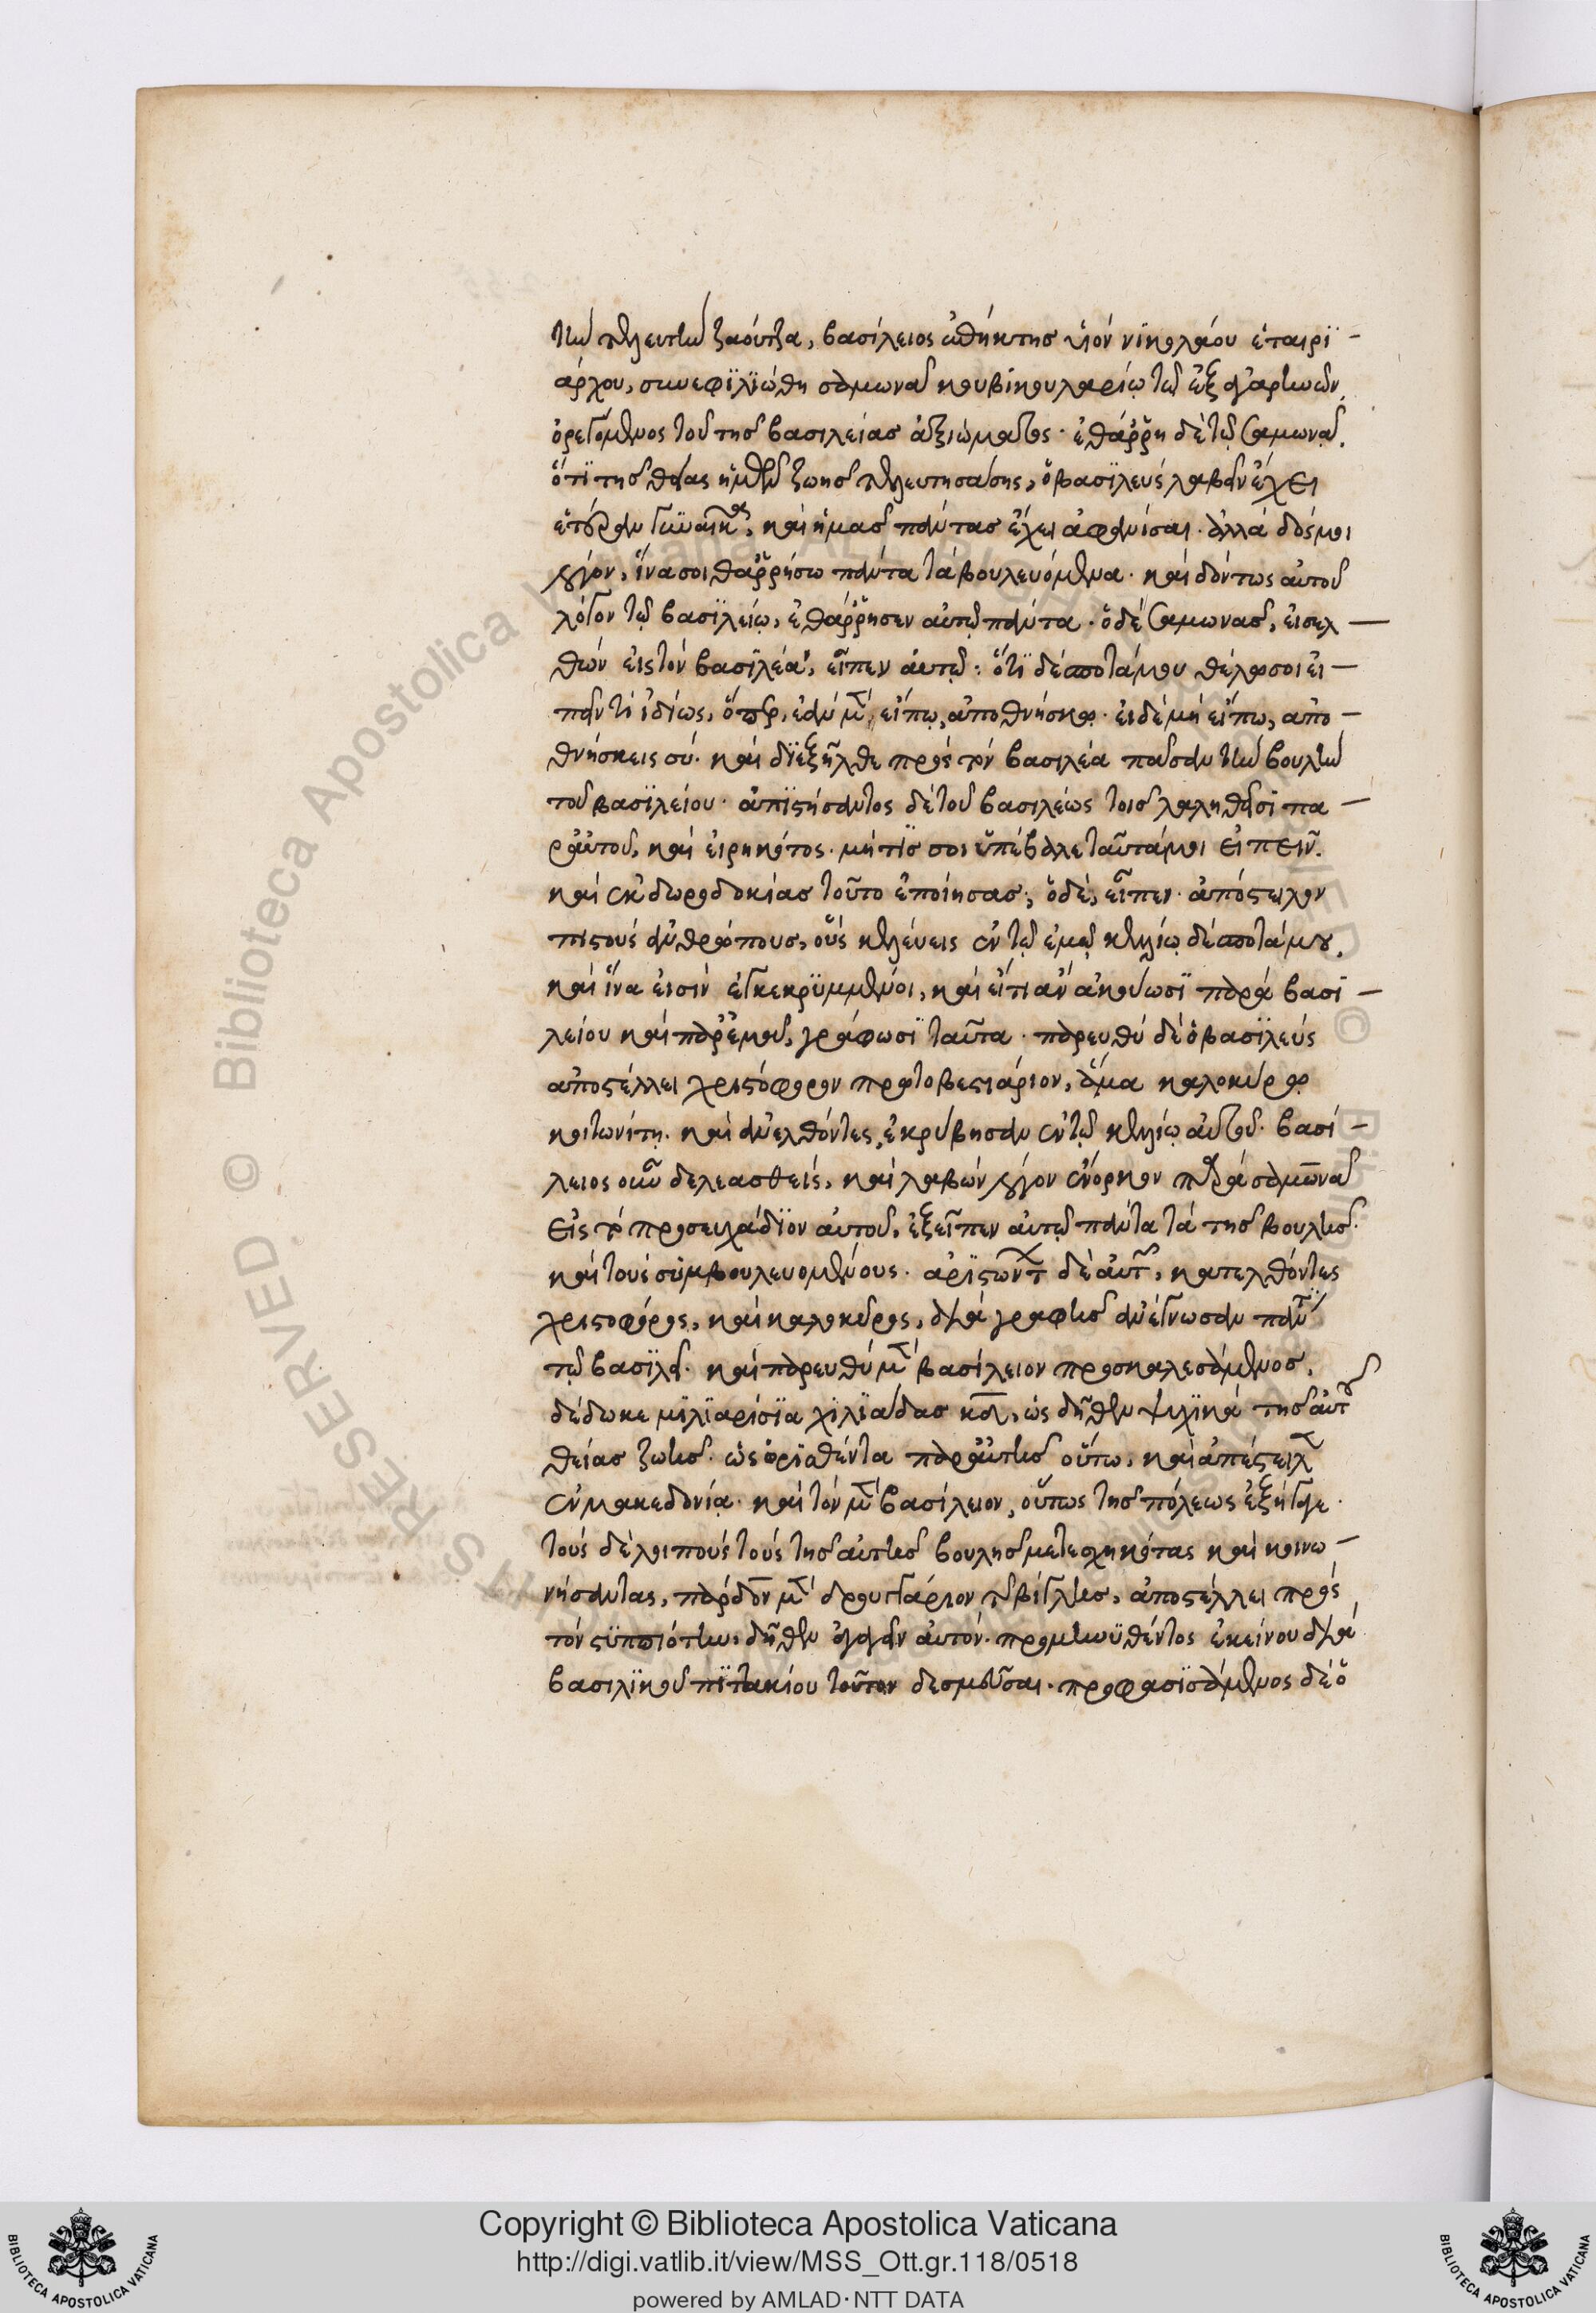 τὴν τελευτὴν ζαούτζα, βασίλειος ὁ ἐπείκτης υἱὸν νϊκολάου ἑταιρϊ-
άρχου, συνεφϊλϊώθη σαμωνᾶ κουβικουλαρίῳ τῷ ἐξ ἀγαρηνῶν,
ὀρεγόμενος τοῦ τῆς βασιλείας ἀξιώματος. ἐθάῤῥη δὲ τῷ σαμωνᾷ.
ὅτϊ τῆς θείας ἡμῶν ζωῆς τελευτησάσης, ὁ βασϊλεὺς λαβεῖν ἔχει
ἑτέραν γυναῖκα, καὶ ἡμᾶς πάντας ἔχει ἀφανίσαι. ἀλλὰ δός μοι
λόγον, ἵνα σοι θαῤῥήσω πάντα τὰ βουλευόμενα. καὶ δόντως αὐτοῦ
λόγον τῷ βασϊλείῳ, ἐθάῤῥησεν αὐτῷ πάντα. ὁ δὲ σαμωνᾶς, εἰσελ-
θὼν εἰς τὸν βασϊλέα, εἶπεν αὐτῷ: ὅτϊ δέσποτά μου θέλω σοι εἰ-
πεῖν τὶ ἰδίως, ὅπερ, ἐὰν μὲν εἴπω, ἀποθνήσκω. εἰ δὲ μὴ εἴπω, ἀπο-
θνήσκεις σύ. καὶ δϊεξῆλθε πρὸς τὸν βασιλέα πᾶσαν τὴν βουλὴν
τοῦ βασϊλείου. ἀπϊστήσαντος δὲ τοῦ βασιλέως τοῖς λαληθεῖσϊ πα-
ρ' αὐτοῦ, καὶ εἰρηκότος. μή τϊς σοι ὑπέβαλε ταῦτά μοι εἰπεῖν.
καὶ ἐκ δωροδοκίας τοῦτο ἐποίησας; ὁ δὲ, εἶπεν. ἀπόστειλον
πιστοὺς ἀνθρώπους, οὓς κελεύεις ἐν τῷ ἐμῷ κελλίῳ δέσποτά μου.
καὶ ἵνα εἰσὶν ἐγκεκρϋμμένοι, καὶ εἴτι ἂν ἀκούωσϊ παρὰ βασϊ-
λείου καὶ παρ' ἐμοῦ, γράφωσϊ ταῦτα. παρευθὺ δὲ ὁ βασϊλεὺς
ἀποστέλλει χριστόφορον πρωτοβεστιάριον, ἅμα καλοκύρῳ
κοιτωνίτῃ. καὶ ἀνελθόντες, ἐκρύβησαν ἐν τῷ κελλίῳ αὐτοῦ. βασί-
λειος οὖν δελεασθεὶς, καὶ λαβὼν λόγον ἔνορκον παρὰ σαμωνᾶ
εἰς τὸ προσευχάδϊον αὐτοῦ, ἐξεῖπεν αὐτῷ πάντα τὰ τῆς βουλῆς.
καὶ τοὺς συμβουλευομένους. ἀρϊστώντων δὲ αὐτῶν, κατελθόντες
χριστοφόρος, καὶ καλοκύρος, διὰ γραφῆς ἀνέγνωσαν πάντα
τῷ βασϊλεῖ. καὶ παρευθὺ μὲν βασίλειον προσκαλεσάμενος,
δέδωκε μϊλϊαρίσϊα χϊλϊάδας κδ, ὡς δῆθεν ψυχϊκὰ τῆς αὐτοῦ
θείας ζωῆς. ὡς ὁρϊσθέντα παρ' αὐτῆς οὕτω, καὶ ἀπέστειλεν
ἐν μακεδονίᾳ. καὶ τὸν μὲν βασίλειον, οὕτως τῆς πόλεως ἐξήγαγε.
τοὺς δὲ λοιποὺς τοὺς τῆς αὐτῆς βουλῆς μετεσχηκότας καὶ κοινω-
νήσαντας, πάρδον μὲν δρουγγάριον τῆς βίγλης, ἀποστέλλει πρὸς
τὸν στϋπιώτην, δῆθεν ἀγαγεῖν αὐτόν. προμηνϋθέντος ἐκείνου διὰ
βασιλϊκοῦ πϊτακίου τοῦτον δεσμεῦσαι. προφασϊσάμενος δὲ ὁ